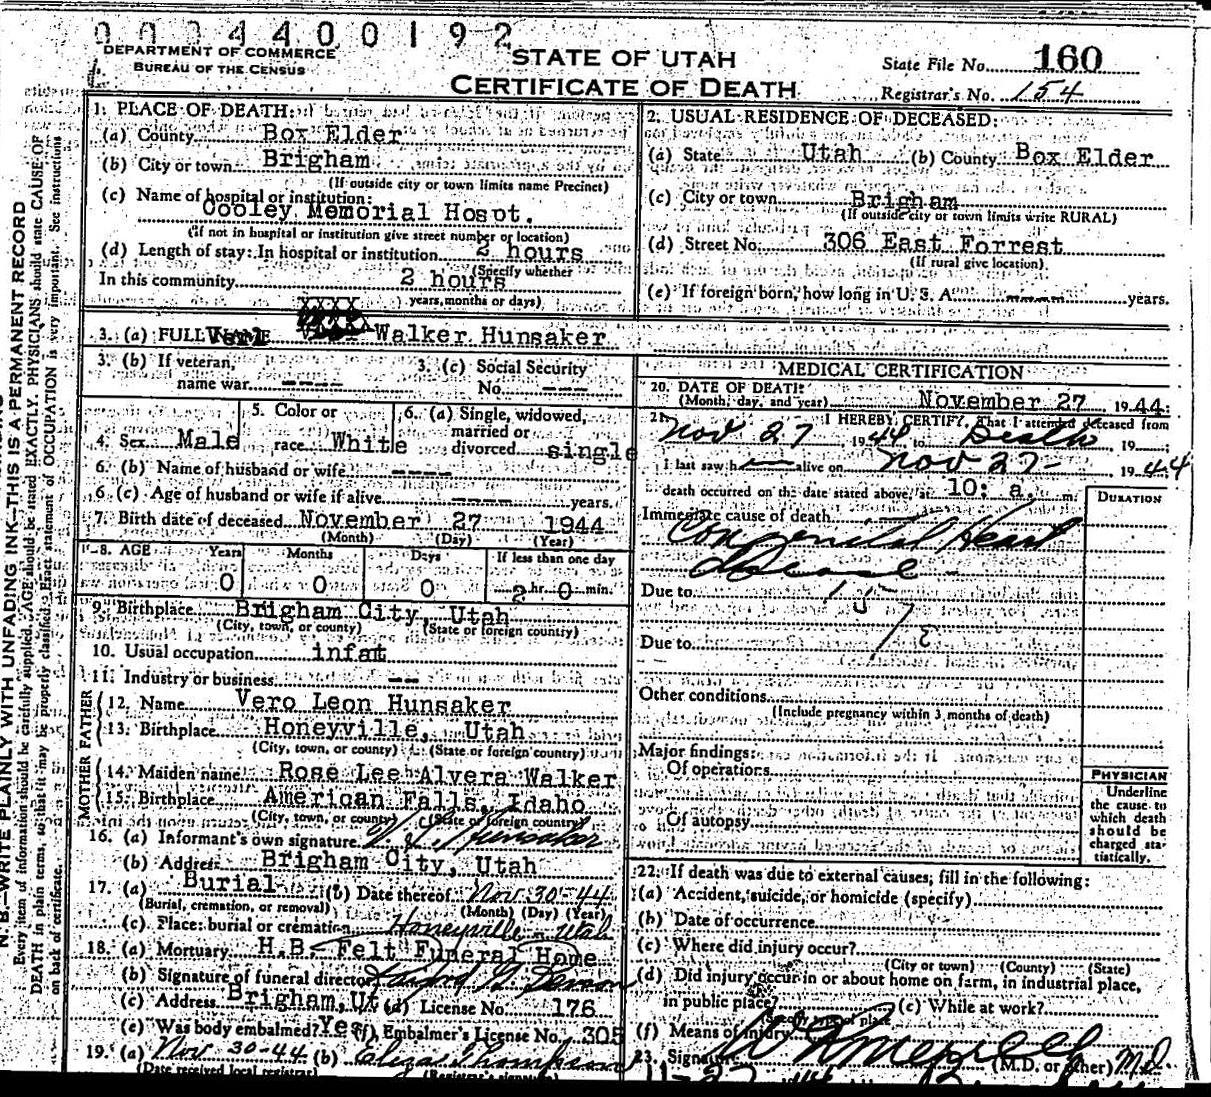 0034400192
DEPARTMENT OF COMMERCE
BUREAU OF THE CENSUS
STATE OF UTAH
CERTIFICATE OF DEATH
State File No. 160
Registrar's No. 154
N. B.—WRITE PLAINLY WITH UNFADING INK—THIS IS A PERMANENT RECORD
Every item of information should be carefully supplied. AGE should be stated EXACTLY. PHYSICIANS should state CAUSE OF
DEATH in plain terms, so that it may be properly classified. Exact statement of OCCUPATION is very important. See instructions
on back of certificate.
1. PLACE OF DEATH:
(a) County Box Elder
(b) City or town Brigham
(If outside city or town limits name Precinct)
(c) Name of hospital or institution:
Cooley Memorial Hospt.
(If not in hospital or institution give street number or location)
(d) Length of stay: In hospital or institution 2 hours
(Specify whether
In this community 2 hours
years, months or days)
2. USUAL RESIDENCE OF DECEASED:
(a) State Utah (b) County Box Elder
(c) City or town Brigham
(If outside city or town limits write RURAL)
(d) Street No. 306 East Forrest
(If rural give location)
(e) If foreign born, how long in U. S. A. ---- years.
XXXX
3. (a) FULL NAME Verl Walker Hunsaker
3. (b) If veteran,
name war ----
3. (c) Social Security
No. ---
4. Sex Male
5. Color or
race White
6. (a) Single, widowed,
married or
divorced single
6. (b) Name of husband or wife ----
6. (c) Age of husband or wife if alive ---- years.
7. Birth date of deceased November 27 1944
(Month) (Day) (Year)
8. AGE Years Months Days If less than one day
0 0 0 2 hr. 0 min.
9. Birthplace Brigham City, Utah
(City, town, or county) (State or foreign country)
10. Usual occupation infat
11. Industry or business --
FATHER
12. Name Vero Leon Hunsaker
13. Birthplace Honeyville, Utah
(City, town, or county) (State or foreign country)
MOTHER
14. Maiden name Rose Lee Alvera Walker
15. Birthplace American Falls, Idaho
(City, town, or county) (State or foreign country)
16. (a) Informant's own signature V. L. Hunsaker
(b) Address Brigham City, Utah
17. (a) Burial (b) Date thereof Nov 30-44
(Burial, cremation, or removal) (Month) (Day) (Year)
(c) Place: burial or cremation Honeyville - Utah
18. (a) Mortuary H.B. Felt Funeral Home
(b) Signature of funeral director
(c) Address Brigham, Ut (d) License No. 176
(e) Was body embalmed? Yes (f) Embalmer's License No. 305
19. (a) Nov 30-44 (b) Eliza Thompson
(Date received local registrar) (Registrar's signature)
MEDICAL CERTIFICATION
20. DATE OF DEATH:
(Month, day, and year) November 27 1944
21. I HEREBY CERTIFY, That I attended deceased from
Nov 27 1944 to Death 19
I last saw h alive on Nov 27- 1944
death occurred on the date stated above, at 10: a. m.
DURATION
Immediate cause of death
Congenital Heart
disease -
Due to 157
Due to
Other conditions
(Include pregnancy within 3 months of death)
Major findings:
Of operations
Of autopsy
PHYSICIAN
Underline
the cause to
which death
should be
charged sta-
tistically.
22. If death was due to external causes, fill in the following:
(a) Accident, suicide, or homicide (specify)
(b) Date of occurrence
(c) Where did injury occur?
(City or town) (County) (State)
(d) Did injury occur in or about home on farm, in industrial place,
in public place? (e) While at work?
(Specify type of place
(f) Means of injury
23. Signature (M.D. or other) M.D.
11-27